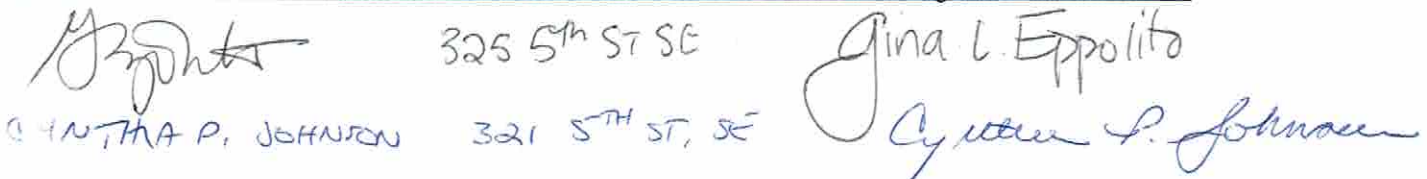 325 5th ST SE Gina L. Eppolito
CYNTHIA P. JOHNSON 321 5TH ST, SE Cynthia P. Johnson